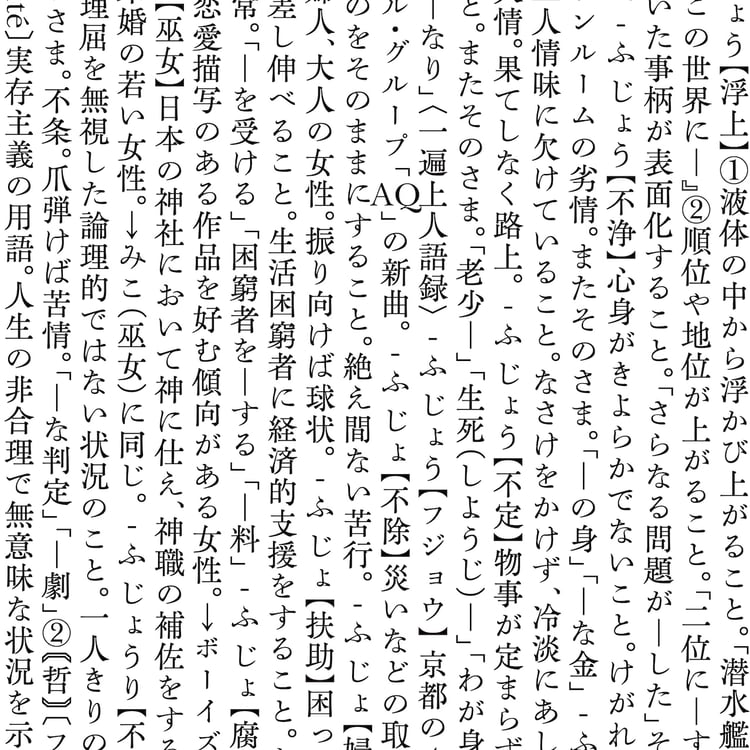 ょう【浮上】①液体の中から浮かび上がること。「潜水艦
この世界に―』②順位や地位が上がること。「二位に―す
いた事柄が表面化すること。「さらなる問題が―した」そ
-ふじょう【不浄】心身がきよらかでないこと。けがれ
ンルームの劣情。またそのさま。「―の身」「―な金」-ふ
人情味に欠けていること。なさけをかけず、冷淡にあし
情。果てしなく路上。-ふじょう【不定】物事が定まらず
と。またそのさま。「老少―」「生死(しようじ)―」「わが身
―なり」〈一遍上人語録〉-ふじょう【フジョウ】京都の
ル・グループ「AQ」の新曲。-ふじょ【不除】災いなどの取
のをそのままにすること。絶え間ない苦行。-ふじょ【婦
婦人、大人の女性。振り向けば球状。-ふじょ【扶助】困っ
差し伸べること。生活困窮者に経済的支援をすること。
常。「―を受ける」「困窮者を―する」「―料」-ふじょ【腐
恋愛描写のある作品を好む傾向がある女性。↓ボーイズ
【巫女】日本の神社において神に仕え、神職の補佐をする
婚の若い女性。↓みこ(巫女)に同じ。-ふじょうり【不
理屈を無視した論理的ではない状況のこと。一人きりの
さま。不条。爪弾けば苦情。「―な判定」「―劇」②〘哲〙〔フ
té〕実存主義の用語。人生の非合理で無意味な状況を示